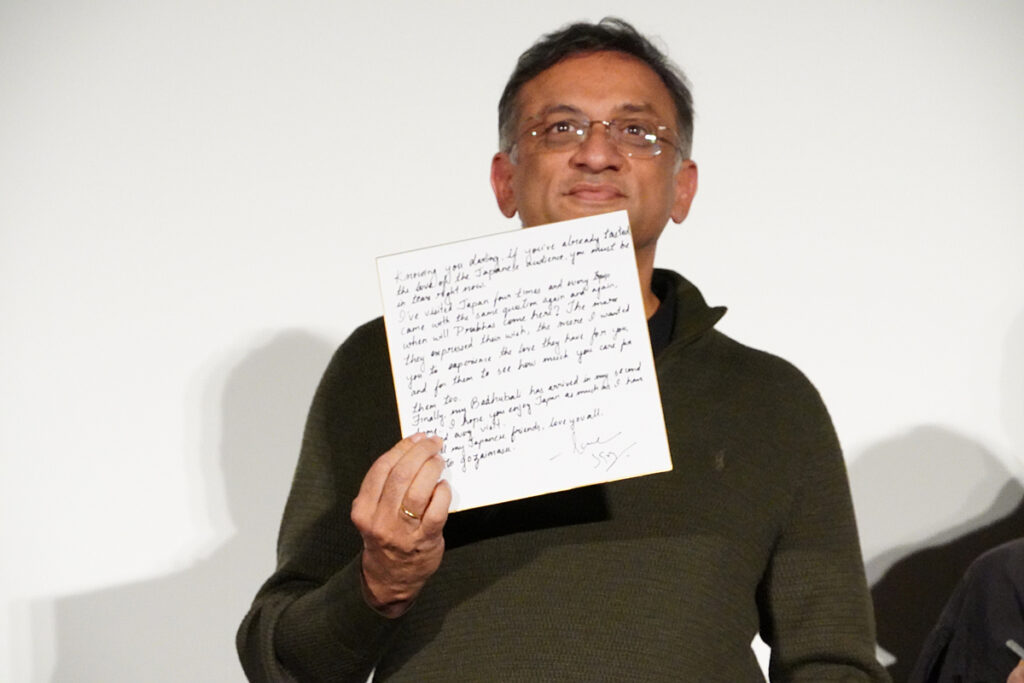 Knowing you darling, If you've already tasted
the love of the Japanese audience, you must be
in tears right now.
I've visited Japan four times and every trip
came with the same question again and again,
when will Prabhas come here? The more
they expressed their wish, the more I wanted
you to experience the love they have for you,
and for them to see how much you care for
them too.
Finally, my Baahubali has arrived in my second
home. I hope you enjoy Japan as much as I have
every visit.
my Japanese friends, love you all.
gozaimasu.